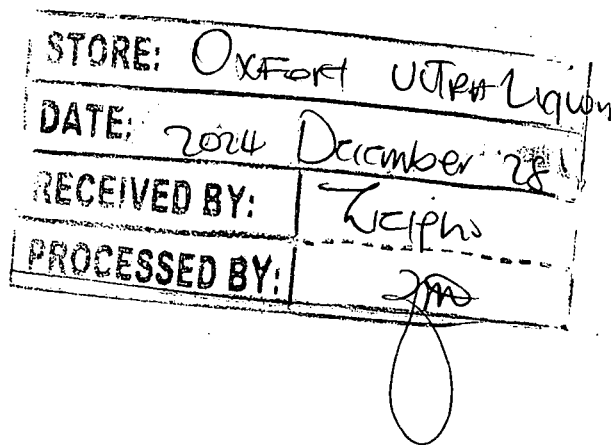 STORE: Oxfort Ultra Liquor
DATE: 2024 December 28
RECEIVED BY:
PROCESSED BY: